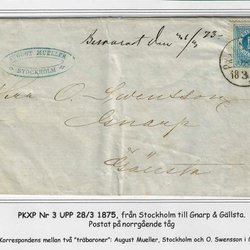 AUGUST MUELLER
STOCKHOLM
Besvarad den 26/4 75
PKXP
18
Herr O. Swensson
Gnarp
Gällsta
PKXP Nr 3 UPP 28/3 1875, från Stockholm till Gnarp & Gällsta.
Postat på norrgående tåg
Korrespondens mellan två "träbaroner": August Mueller, Stockholm och O. Swensson i G